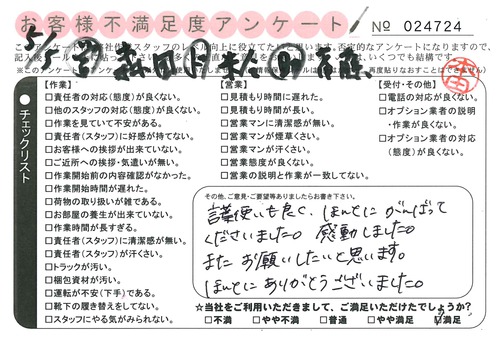 お客様不満足度アンケート
No 024724
【作業】
□責任者の対応(態度)が良くない。
□他のスタッフの対応(態度)が良くない。
□作業を見ていて不安がある。
□責任者(スタッフ)に好感が持てない。
□お客様への挨拶が出来ていない。
□ご近所への挨拶・気遣いが無い。
□作業開始前の内容確認がなかった。
□作業開始時間が遅れた。
□荷物の取り扱いが雑である。
□お部屋の養生が出来ていない。
□作業時間が長すぎる。
□責任者(スタッフ)に清潔感が無い。
□責任者(スタッフ)が汗くさい。
□トラックが汚い。
□梱包資材が汚い。
□運転が不安(下手)である。
□靴下の履き替えをしてない。
□スタッフにやる気がみられない。
【営業】
□見積もり時間に遅れた。
□見積もり時間が長い。
□営業マンに清潔感が無い。
□営業マンが煙草くさい。
□営業マンが汗くさい。
□営業態度が良くない。
□営業の説明と作業が一致してない。
【受付・その他】
□電話の対応が良くない。
□オプション業者の説明
・作業が良くない。
□オプション業者の対応
(態度)が良くない。
チェックリスト
その他、ご意見・ご要望等ありましたらお書き下さい。
言葉使いも良く、ほんとに がんばって
くださいました。 感動しました。
また お願いしたいと思います。
ほんとに ありがとうございました。
☆当社をご利用いただきまして、ご満足いただけたでしょうか?
□不満 □やや不満 □普通 □やや満足 ☑満足